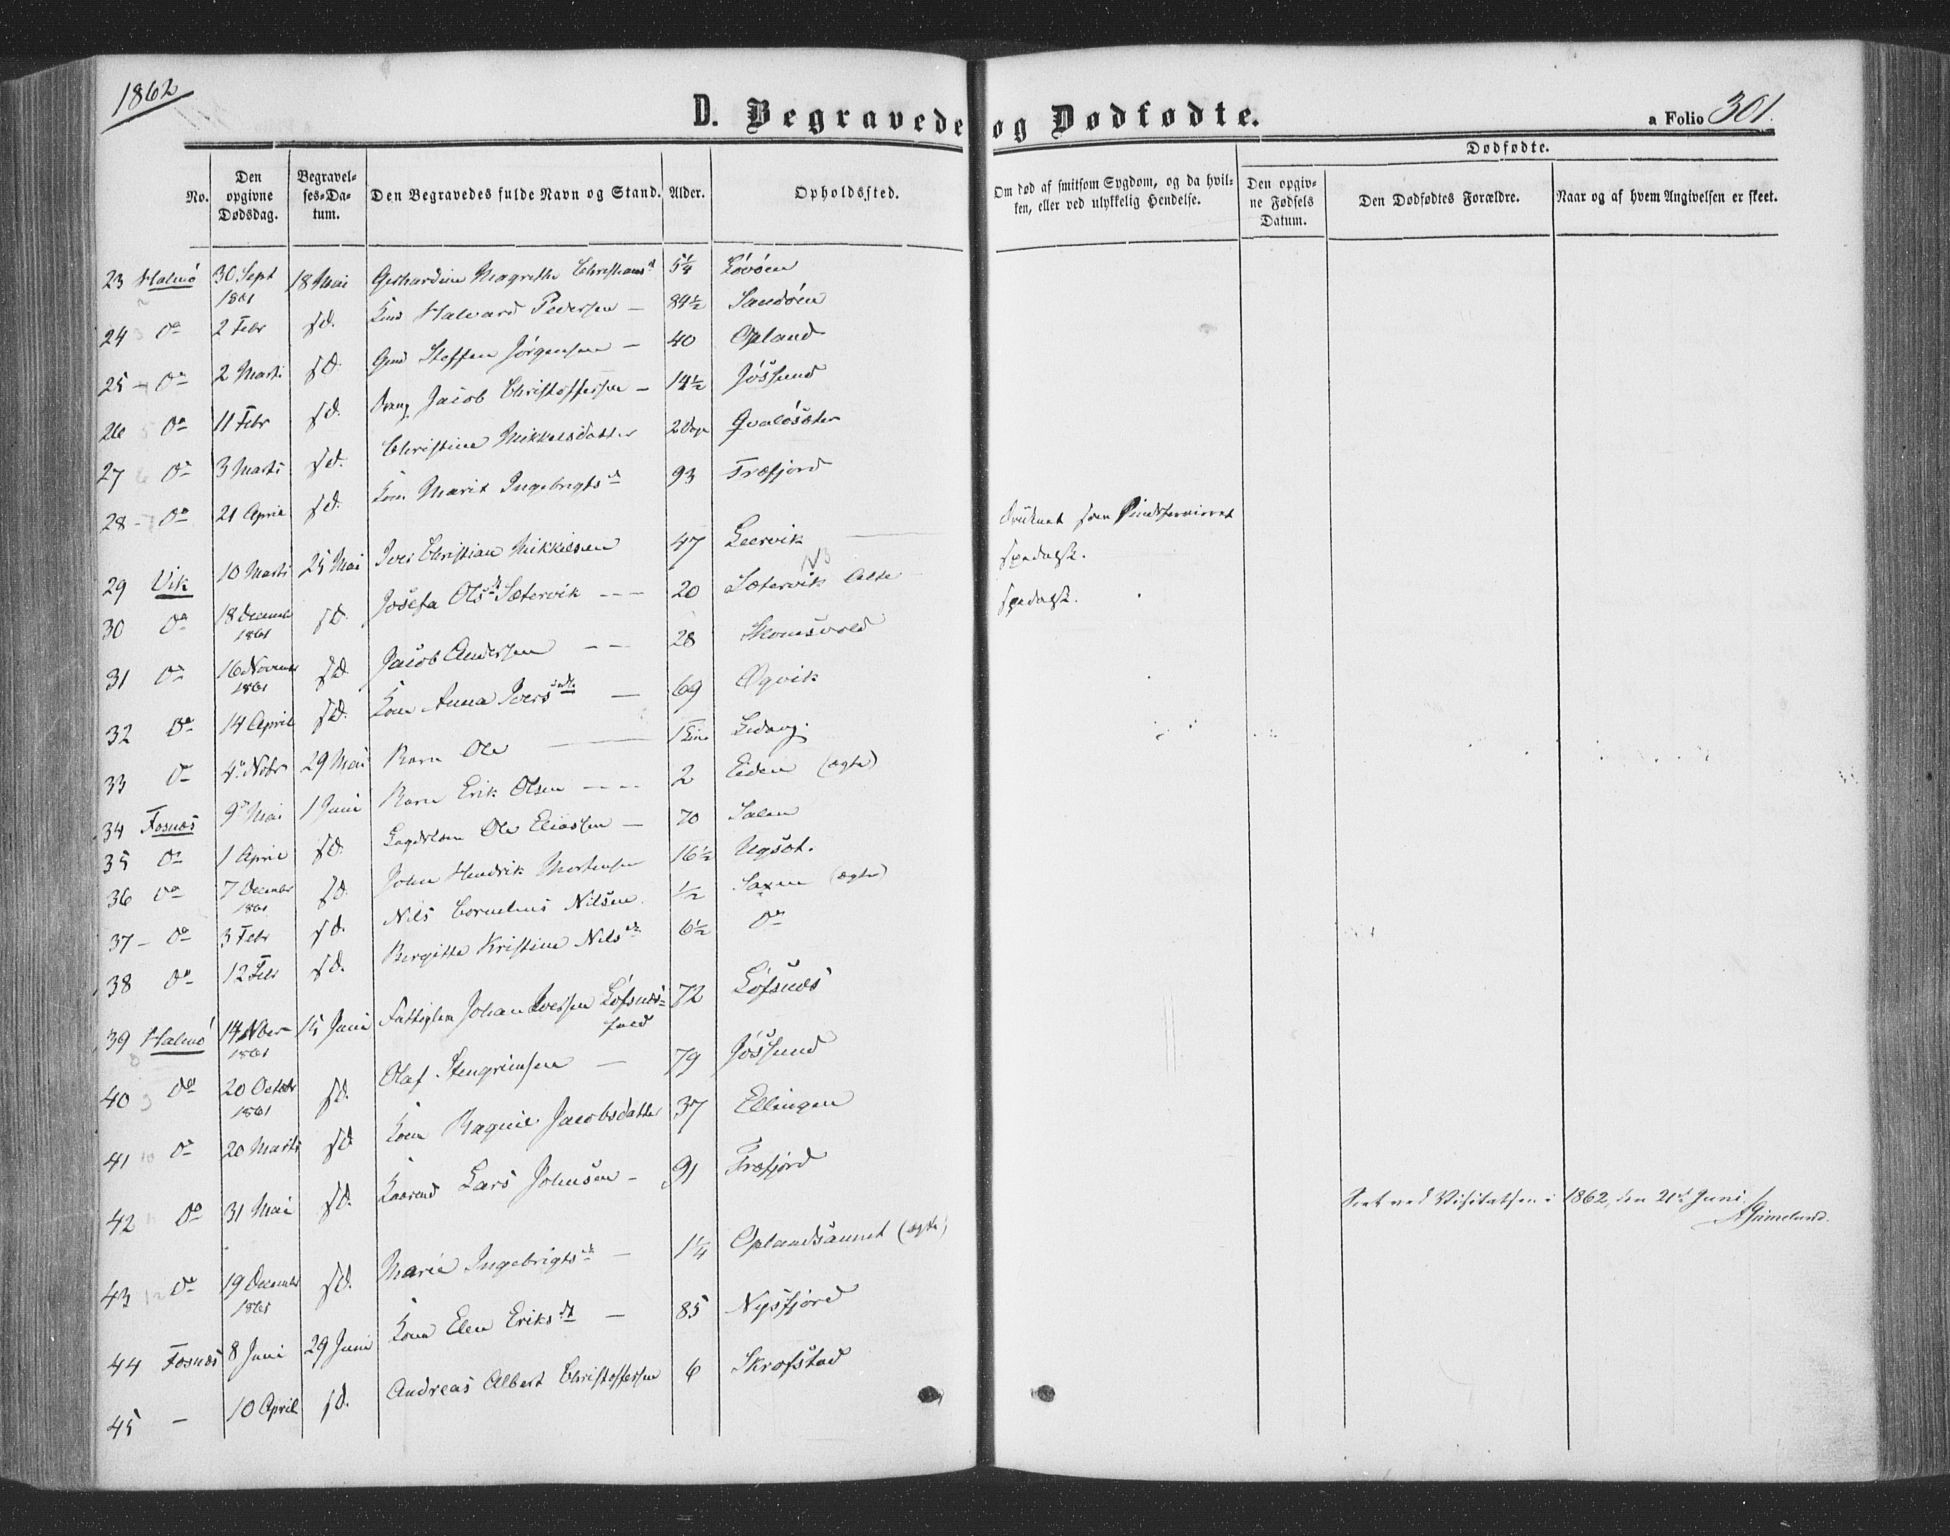 1862
D. Begravede og Dødfødte.
a Folio 301.
Dødfødte.
No.
Den opgivne Dødsdag.
Begravelses-Datum.
Den Begravedes fulde Navn og Stand.
Alder.
Opholdssted.
Om død af smitsom Sygdom, og da hvilken, eller ved ulykkelig Hendelse.
Den opgivne Fødsels Datum.
Den Dødfødtes Forældre.
Naar og af hvem Angivelsen er skeet.
23 Halmö 30 Sept 1861 18 Mai Gerhardine Magrethe Christians d 5 1/4 Lövöen
24 Do 2 Febr s.d. Halvard Pedersen — 84 1/2 Sandöen
25 - Do 2 Marts s.d. Gmd Steffen Jörgensen — 40 Opland
26 Do 11 Febr s.d. Dreng Jacob Christoffersen — 14 1/2 Jössund
27 Do 3 Marts s.d. Christine Mikkelsdatter 2 Dage Qvalösæter
28 - Do 21 April s.d. Kone Marit Ingebrigts d 93 Træfjord
29 Vik 10 Marts 25 Mai Iver Christian Mikkelsen 47 Leervik druknet
30 Do 18 December 1861 s.d. Josefa Ols d Sætervik — 20 Sætervik spedalsk.
31 Do 16 November 1861 s.d. Jacob Andersen — 28 spedalsk.
32 Do 14 April s.d. Kone Anna Ivers dtr — 69 Ogvik
33 Do 4 Nobr 29 Mai Barn Ole —
34 Fosnæs 9 Mai 1 Juni Barn Erik Olsen — 2 Eiden (ægte)
35 Do 1 April s.d. Ole Eliassen — 70 Salen
36 Do 7 December 1861 s.d. John Hendrik Mortensen 16 1/2
37 - Do 3 Febr s.d. Nils Cornelius Nilsen 1/2 Saxen (ægte)
38 Do 12 Febr s.d. Bergitte Kristine Nils d 6 1/2 Do
39 Halmö 14 Nber 1861 15 Juni Fattiglem Johan Iversen Löfsnæs- 72 Löfsnæs
40 Do 20 October 1861 s.d. Olaf Stengrimsen — 79 Jössund
41 Do 20 Marts s.d. Kone Ragnil Jacobsdatter 37 Ellingen
42 Do 31 Mai s.d. Kaarmd Lars Johnsen - 91 Træfjord
Seet ved Visitatsen i 1862, den 21de Juni
A Grimelund.
43 Do 19 December 1861 s.d. Marie Ingebrigts d — 1 1/4 Oplandsaunet (ægte)
44 Fosnæs 8 Juni 29 Juni Kone Elen Eriks dt — 85 Nysfjord
45 — 10 April s.d. Andreas Albert Christoffersen 6 Skrofstad